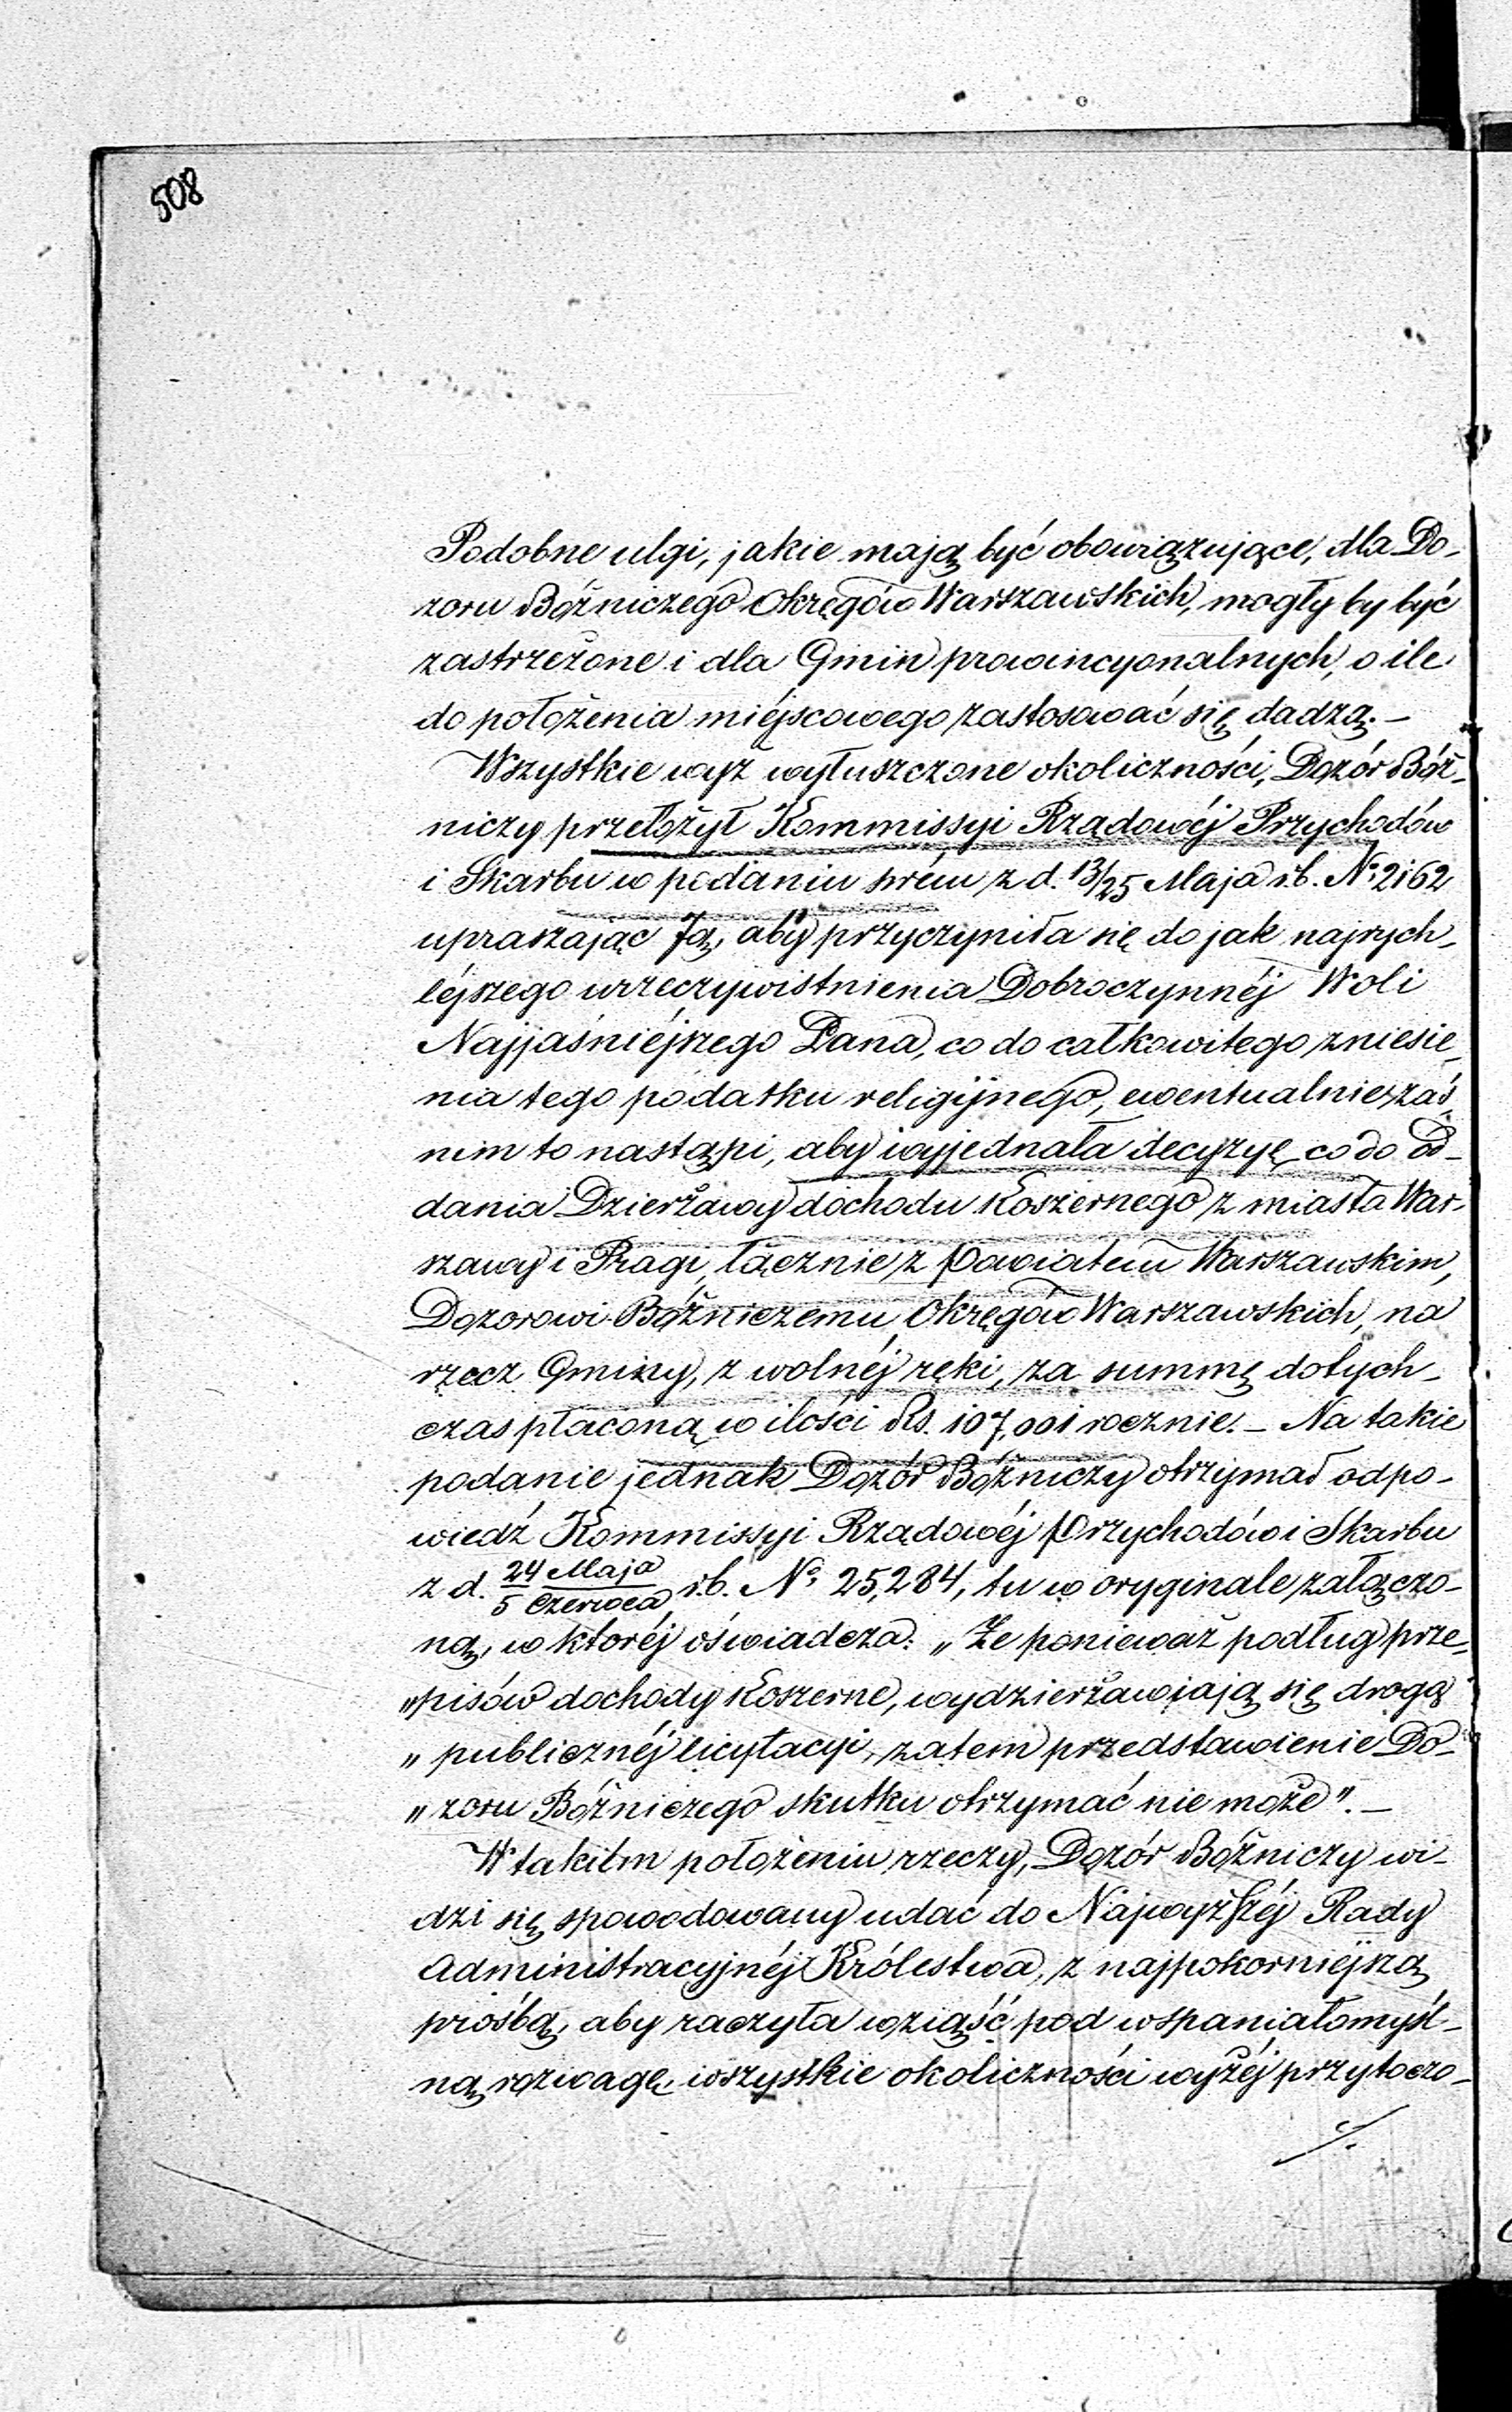 508
Podobne ulgi, jakie mają być obowiązujące, dla Do-
zoru Bóżniczego Okręgów Warszawskich, mogły by być
zastrzeżone i dla Gmin prowincyonalnych, o ile
do położenia miéjscowego zastosować się dadzą. –
Wszystkie wyż wyłuszczone okoliczności, Dozór Bóż-
niczy przełożył Kommissyi Rządowéj Przychodów
i Skarbu w podaniu swém z d. 13/25 Maja r.b. Nº 2162
upraszając Ją, aby przyczyniła się do jak najrych-
léjszego urzeczywistnienia Dobroczynnéj Woli
Najjaśniéjszego Pana, co do całkowitego zniesie-
nia tego podatku religijnego, ewentualnie zaś,
nim to nastąpi, aby wyjednała decyzyę co do od-
dania Dzierżawy dochodu Koszernego z miasta War-
szawy i Pragi, łącznie z Powiatem Warszawskim,
Dozorowi Bóżniczemu Okręgów Warszawskich, na
rzecz Gminy, z wolnéj ręki, za summę dotych-
czas płaconą w ilości Rs. 107,001 rocznie. – Na takie
podanie jednak Dozór Bóżniczy otrzymał odpo-
wiedź Kommissyi Rządowéj Przychodów i Skarbu
z d. 24 Maja/5 Czerwca r.b. Nº 25,284, tu w oryginale załączo-
ną, w któréj oświadcza: „Że ponieważ podług prze-
„pisów dochody Koszerne, wydzierżawiają się drogą
„publicznéj licytacyi, zatem przedstawienie Do-
„zoru Bóżniczego skutku otrzymać nie może". –
W takiém położeniu rzeczy, Dozór Bóżniczy wi-
dzi się spowodowany udać do Najwyższéj Rady
Administracyjnéj Królestwa, z najpokorniejszą
prośbą, aby raczyła wziąść pod wspaniałomyśl-
ną rozwagę wszystkie okoliczności wyżéj przytoczo-
./.